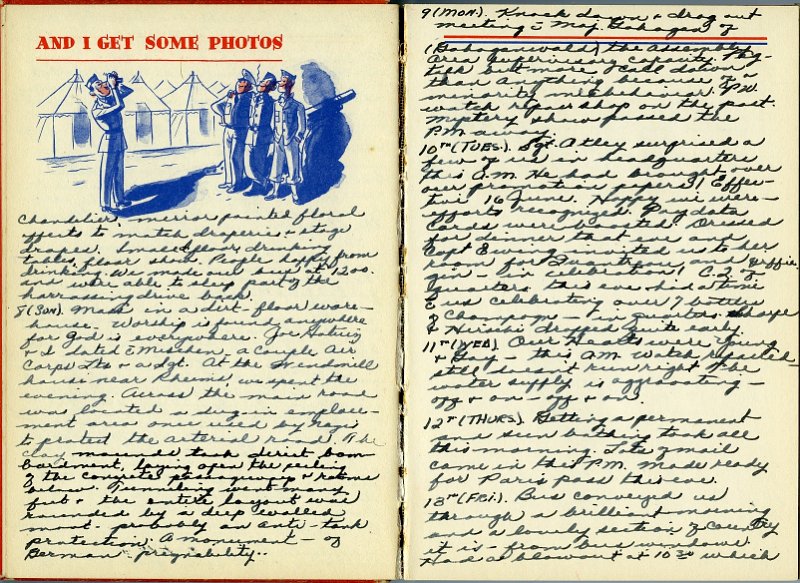 AND I GET SOME PHOTOS
Chandelier, mirror painted floral
effects to match draperies & stage
drapes. Small floor, drinking
tables, floor show. People happy from
drinking. We made our bus at 1200.
and were able to sleep part of the
harrassing drive back.
8 (SUN). Mass in a dirt-floor ware-
house. Worship is found anywhere
for God is everywhere. Joe
& I dated E a couple Air
Corps Lts & a Sgt. At the Windmill
house near Rheims we spent the
evening. Across the main road
was located a dug-in emplace-
ment area once used by Nazis
to protect the arterial road. The
clay mounds took direct bom-
bardment, laying open the ceiling
of the concrete passageways & rooms
below. Tunnelling went many
feet & the entire layout was
rounded by a deep walled
moat - probably an anti-tank
protection. A monument - of
German pregnability..
9 (MON.). Knock down & drag out
meeting - Maj. of
the Assembly
Area supervisory capacity. Pay-
talk but more a call down
than anything because of a
minority misbehavior. P.W.
watch repair shop on the post.
Mystery show passed the
P.M. away.
10TH (TUES.). Sgt. Atley surprised a
few of us in headquarters
this A.M. He had brought over
our promotion papers! Effec-
tive 16 June. Happy we were -
efforts recognized. Pay data
cards were boosted. Dressed
for dinner that eve and
Capt Ewing invited us to her
room for and
gin - in celebration! C.2 of
quarters this eve - had a time
& us celebrating over 7 bottles
of Champagne - in quarters.
& Hirschi dropped quite early.
11TH (WED). Our heads were going
& Gay - this A.M. Watch repaired -
still doesn't run right. The
water supply is aggravating -
off & on - off & on.
12TH (THURS). Getting a permanent
and sun bathing took all
this morning. Lots of mail
came in this P.M. Made ready
for Paris pass this eve.
13TH (FRI). Bus conveyed us
through a brilliant morning
and a lovely section of country
it is - from bus windows.
Had a blowout at 10 30 which